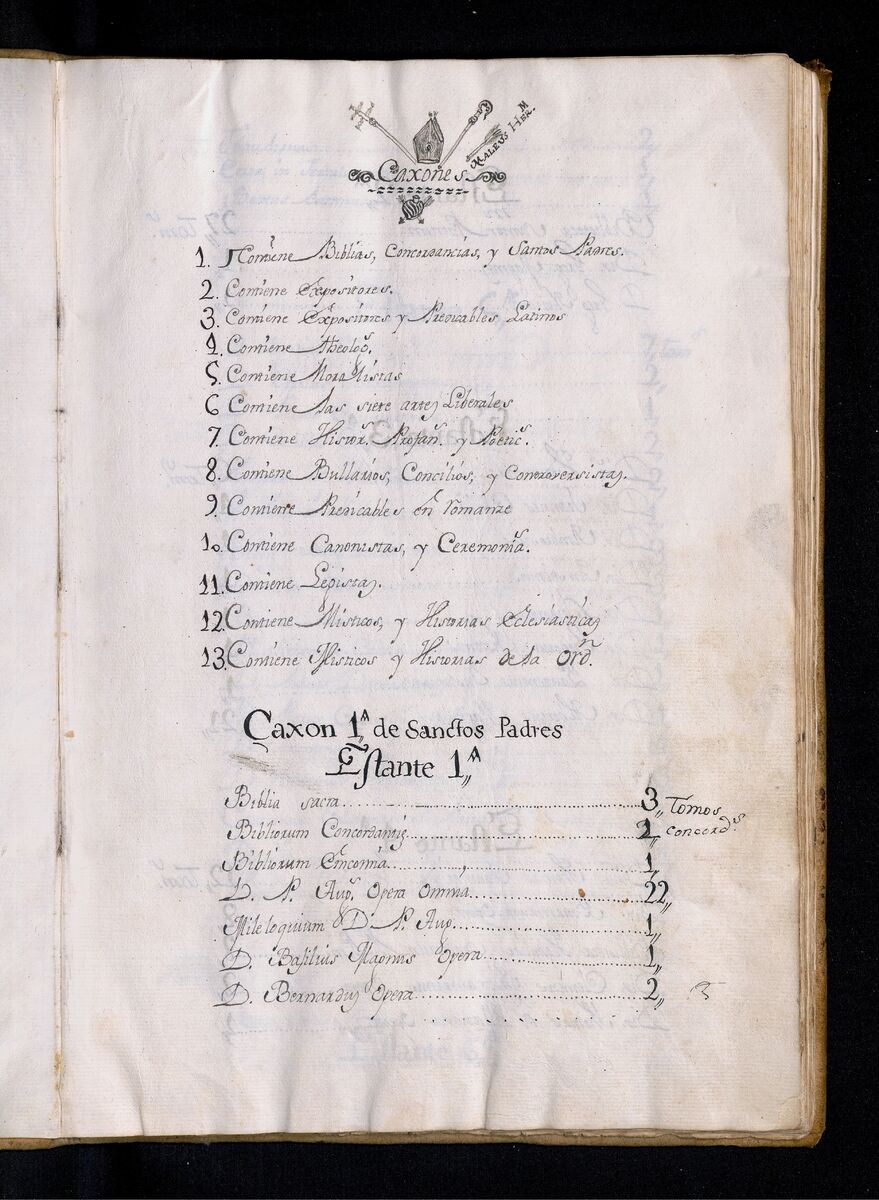 MALEUS HER.M
Caxones
1. Contiene Biblias, Concordancias, y Santos Padres.
2. Contiene Expositores.
3. Contiene Expositores y Predicables Latinos
4. Contiene Theologs.
5. Contiene Moralistas
6 Contiene las siete artes Liberales
7. Contiene Histors. Profans. y Poetics.
8. Contiene Bullarios, Concilios, y Controversistas.
9. Contiene Predicables en romanze
10. Contiene Canonistas, y Ceremonias.
11. Contiene Legistas.
12. Contiene Misticos, y Historias Eclesiasticas
13. Contiene Misticos y Historias de la Ordn.
Caxon 1.A de Sanctos Padres
Estante 1.A
Biblia sacra 3,, Tomos
Bibliorum Concordantię 2,, concords.
Bibliorum Encomia 1,,
D. P. Augs. Opera Omnia 22,,
Mileloquium D. P. Aug. 1,,
D. Basilius Magnus Opera 1,,
D. Bernardus Opera 2,,